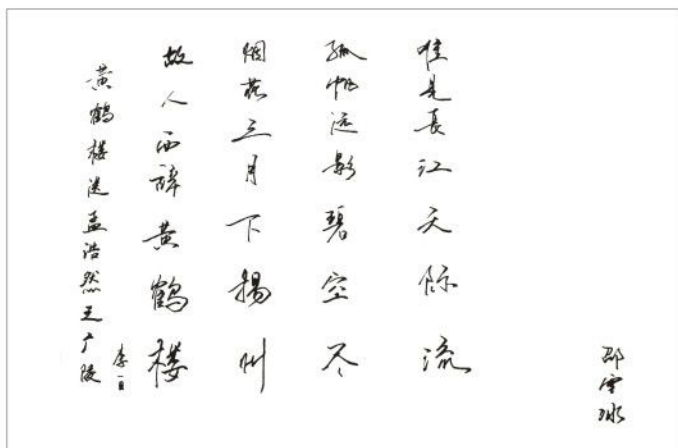 黄鹤楼送孟浩然之广陵
李白
故人西辞黄鹤楼
烟花三月下扬州
孤帆远影碧空尽
惟是長江天际流
邵雪冰